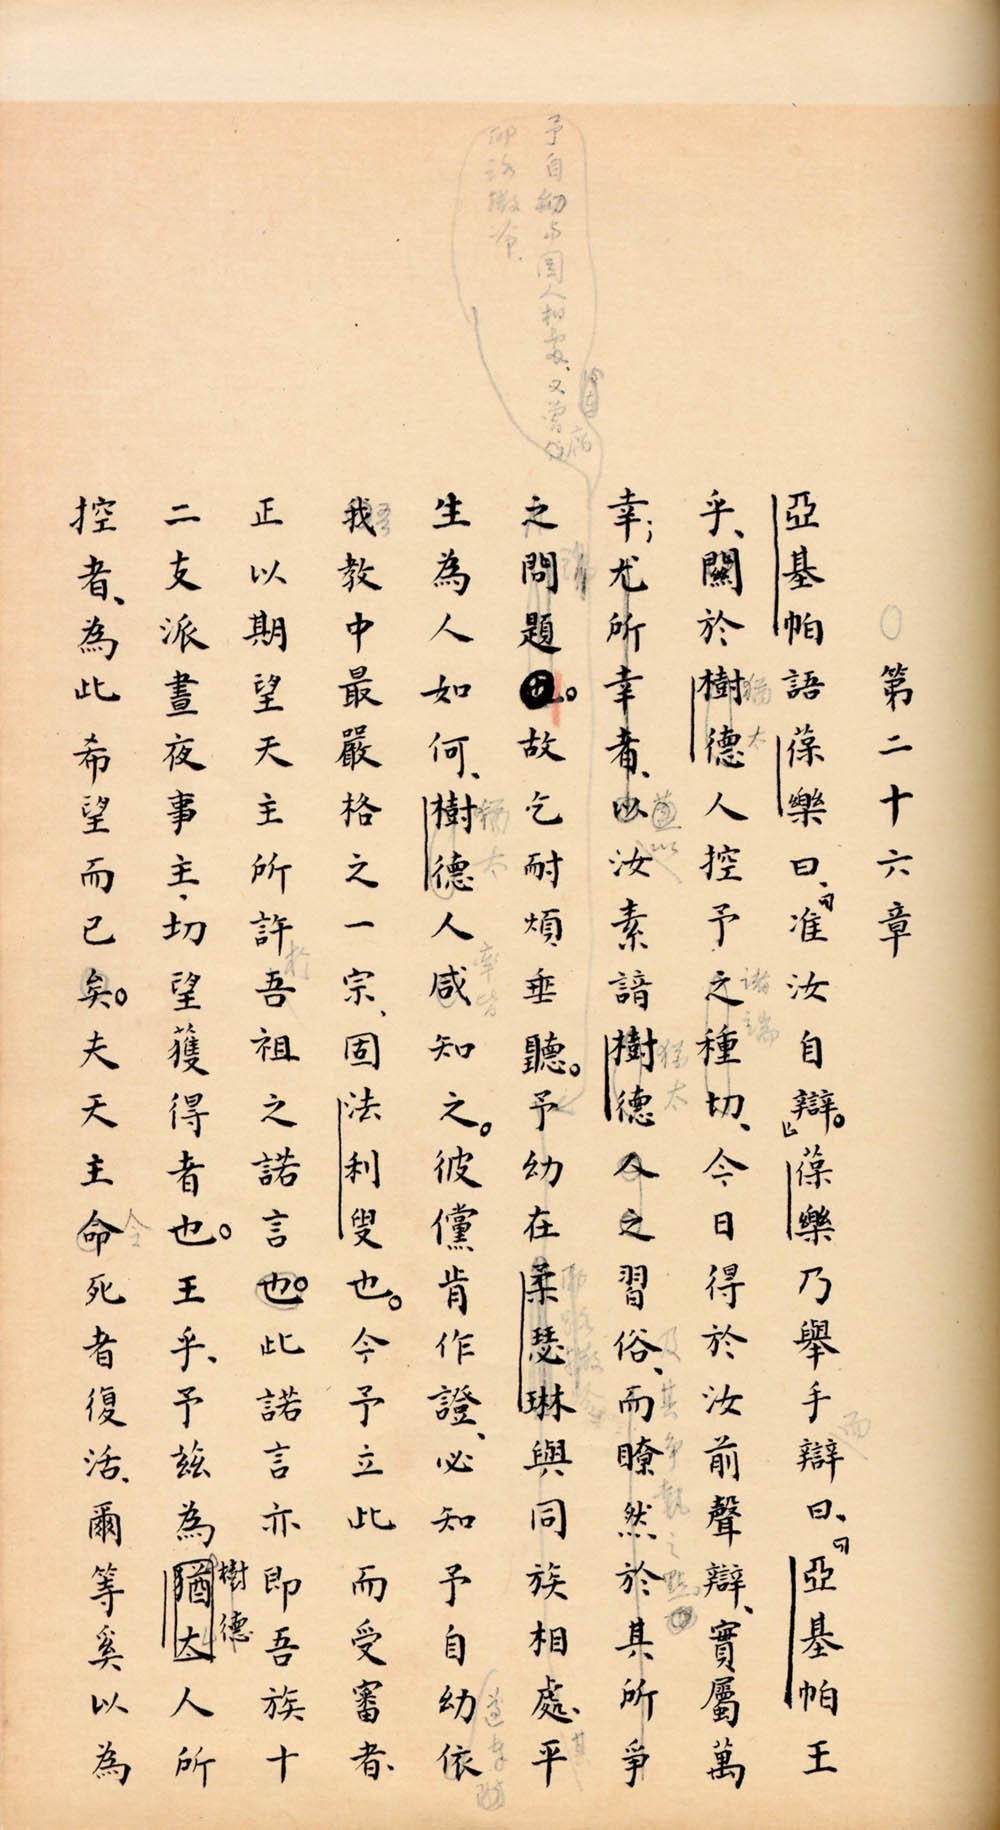 第二十六章
亞基帕語葆樂曰、「准汝自辯。」葆樂乃舉手辯曰、「亞基帕王
乎、關於樹德人控予之種切、今日得於汝前聲辯、實屬萬
幸；尤所幸者、以汝素諳樹德人之習俗、而瞭然於其所爭
之問題也。故乞耐煩垂聽。予幼在柔瑟琳與同族相處、平
生為人如何、樹德人咸知之。彼儻肯作證、必知予自幼依
我教中最嚴格之一宗、固法利叟也。今予立此而受審者、
正以期望天主所許吾祖之諾言也。此諾言亦即吾族十
二支派晝夜事主、切望獲得者也。王乎、予茲為猶太人所
控者、為此希望而已矣。夫天主命死者復活、爾等奚以為
樹德
予自幼與國人相處、又曾
猶太
諸端
而
猶太
及其爭執之點
猶太
吾
於
令
其